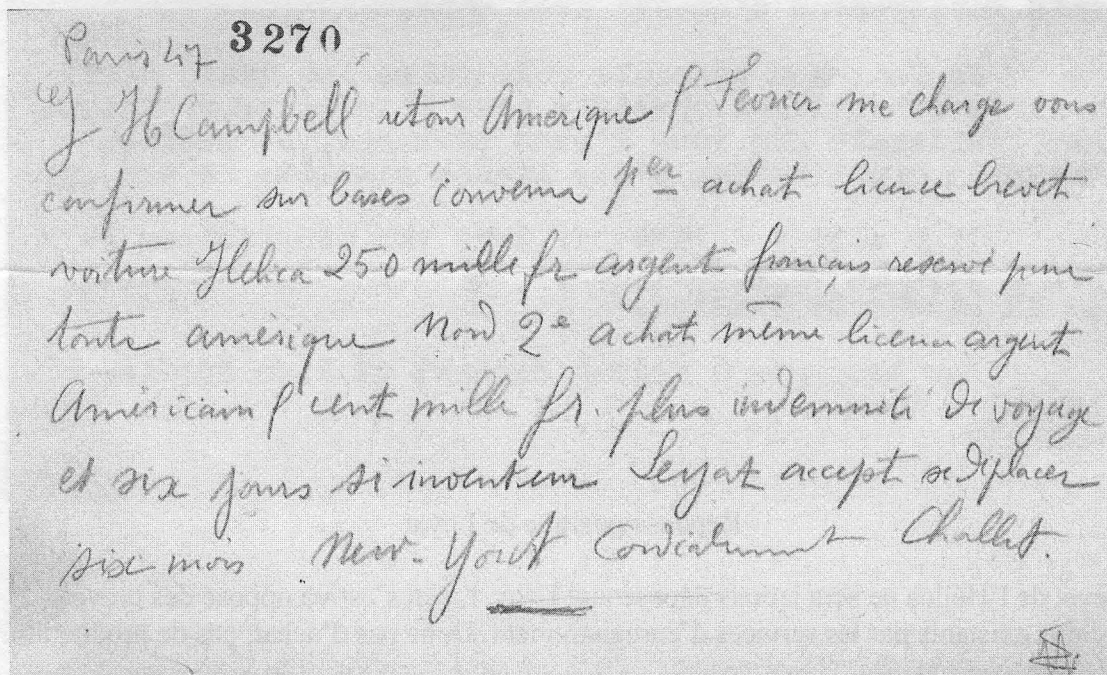 Paris 47 3270
J H Campbell retour Amérique Fevrier me charge vous
confirmer sur bases convenu per achat licence brevet
voiture Helica 250 mille fr argent français reservé pour
toute amérique Nord 2e achat même licence argent
Américain cent mille fr. plus indemnité de voyage
et six jours si inventeur Leyat accept se déplacer
six mois New-York Cordialement Challet.